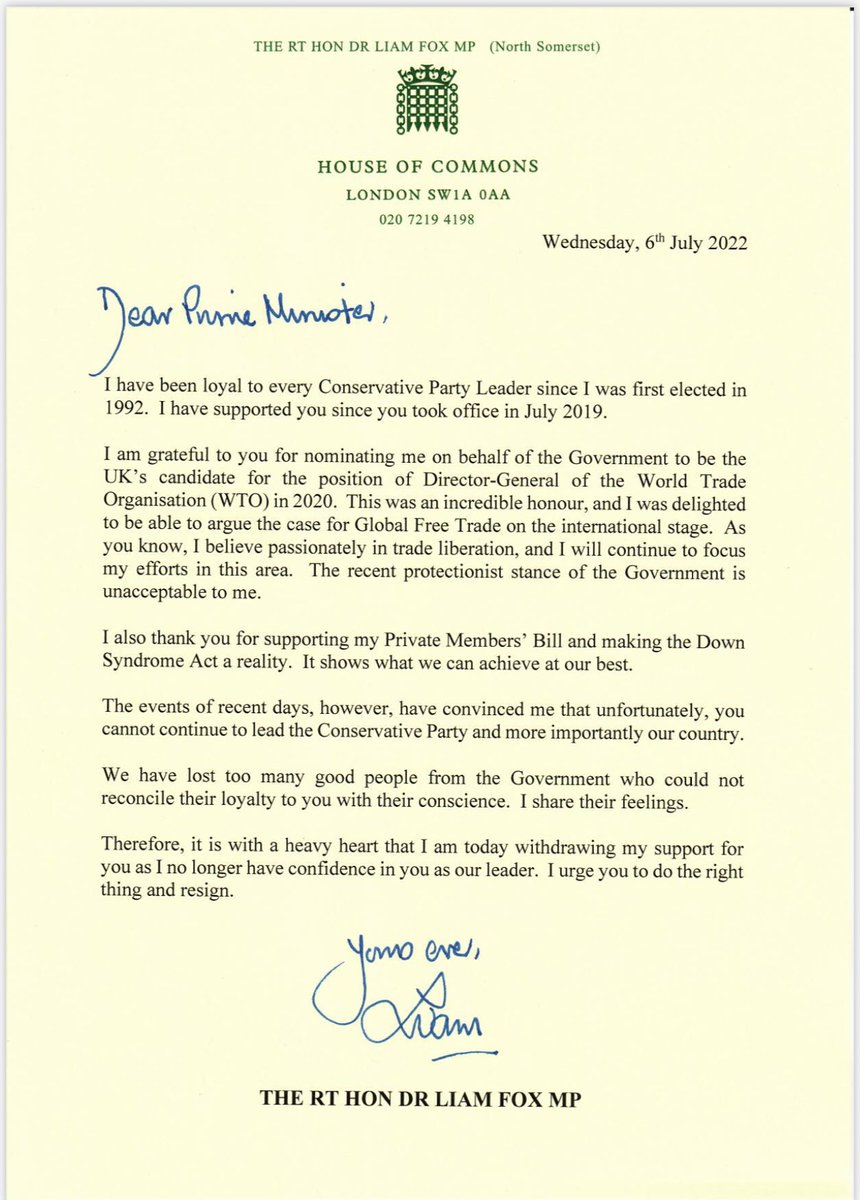 THE RT HON DR LIAM FOX MP (North Somerset)
HOUSE OF COMMONS
LONDON SW1A 0AA
020 7219 4198
Wednesday, 6th July 2022
Dear Prime Minister,
I have been loyal to every Conservative Party Leader since I was first elected in
1992. I have supported you since you took office in July 2019.
I am grateful to you for nominating me on behalf of the Government to be the
UK's candidate for the position of Director-General of the World Trade
Organisation (WTO) in 2020. This was an incredible honour, and I was delighted
to be able to argue the case for Global Free Trade on the international stage. As
you know, I believe passionately in trade liberation, and I will continue to focus
my efforts in this area. The recent protectionist stance of the Government is
unacceptable to me.
I also thank you for supporting my Private Members' Bill and making the Down
Syndrome Act a reality. It shows what we can achieve at our best.
The events of recent days, however, have convinced me that unfortunately, you
cannot continue to lead the Conservative Party and more importantly our country.
We have lost too many good people from the Government who could not
reconcile their loyalty to you with their conscience. I share their feelings.
Therefore, it is with a heavy heart that I am today withdrawing my support for
you as I no longer have confidence in you as our leader. I urge you to do the right
thing and resign.
Yours ever,
Liam
THE RT HON DR LIAM FOX MP